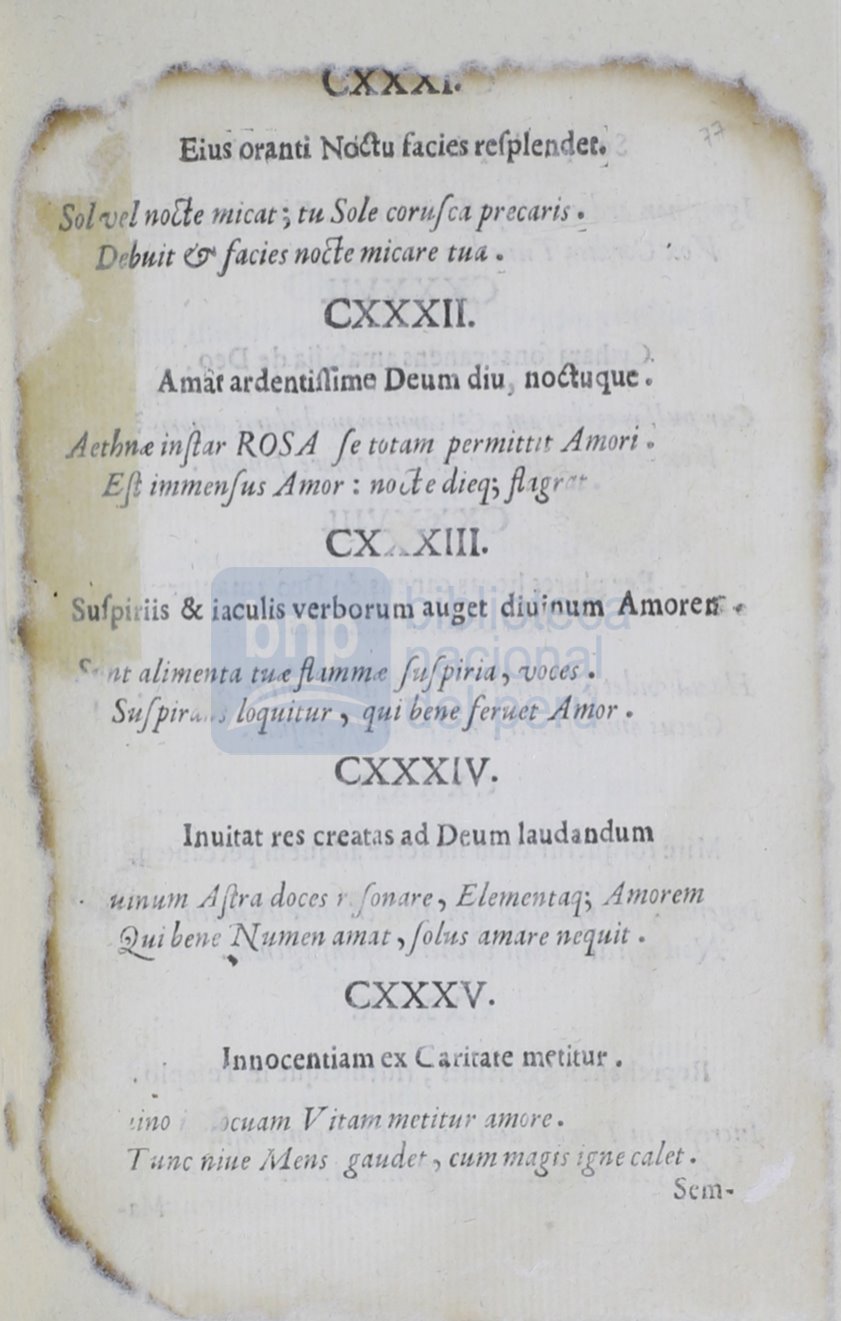 CXXXI.
77
Eius oranti Noctu facies reſplendet.
Sol vel nocte micat; tu Sole coruſca precaris.
Debuit & facies nocte micare tua.
CXXXII.
Amat ardentiſſime Deum diu, noctuque.
Aethnæ inſtar ROSA ſe totam permittit Amori.
Eſt immenſus Amor: nocte dieq;
CXXXIII.
Suſpiriis & iaculis verborum auget diuinum Amorem.
alimenta tuæ flammæ ſuſpiria, voces.
loquitur, qui bene feruet Amor.
CXXXIV.
Inuitat res creatas ad Deum laudandum
Aſtra doces reſonare, Elementaq; Amorem
Qui bene Numen amat, ſolus amare nequit.
CXXXV.
Innocentiam ex Caritate metitur.
Vitam metitur amore.
Tunc niue Mens gaudet, cum magis igne calet.
Sem-
bnp biblioteca
nacional
del perú